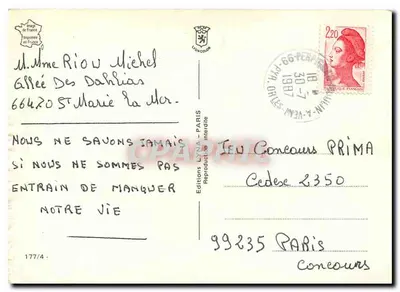 M. Mme RIOU Michel
Allée Des Dahlias
66470 St Marie la Mer.
NOUS NE SAVONS JAMAIS
SI NOUS NE SOMMES PAS
ENTRAIN DE MANQUER
NOTRE VIE
177/4 -
LYNCOLOR
Editions LYNA - PARIS
Reproduction interdite
2,20
18 H
30-7
1987
Jeu Concours PRIMA
Cedex 2350
99235 PARIS
Concours